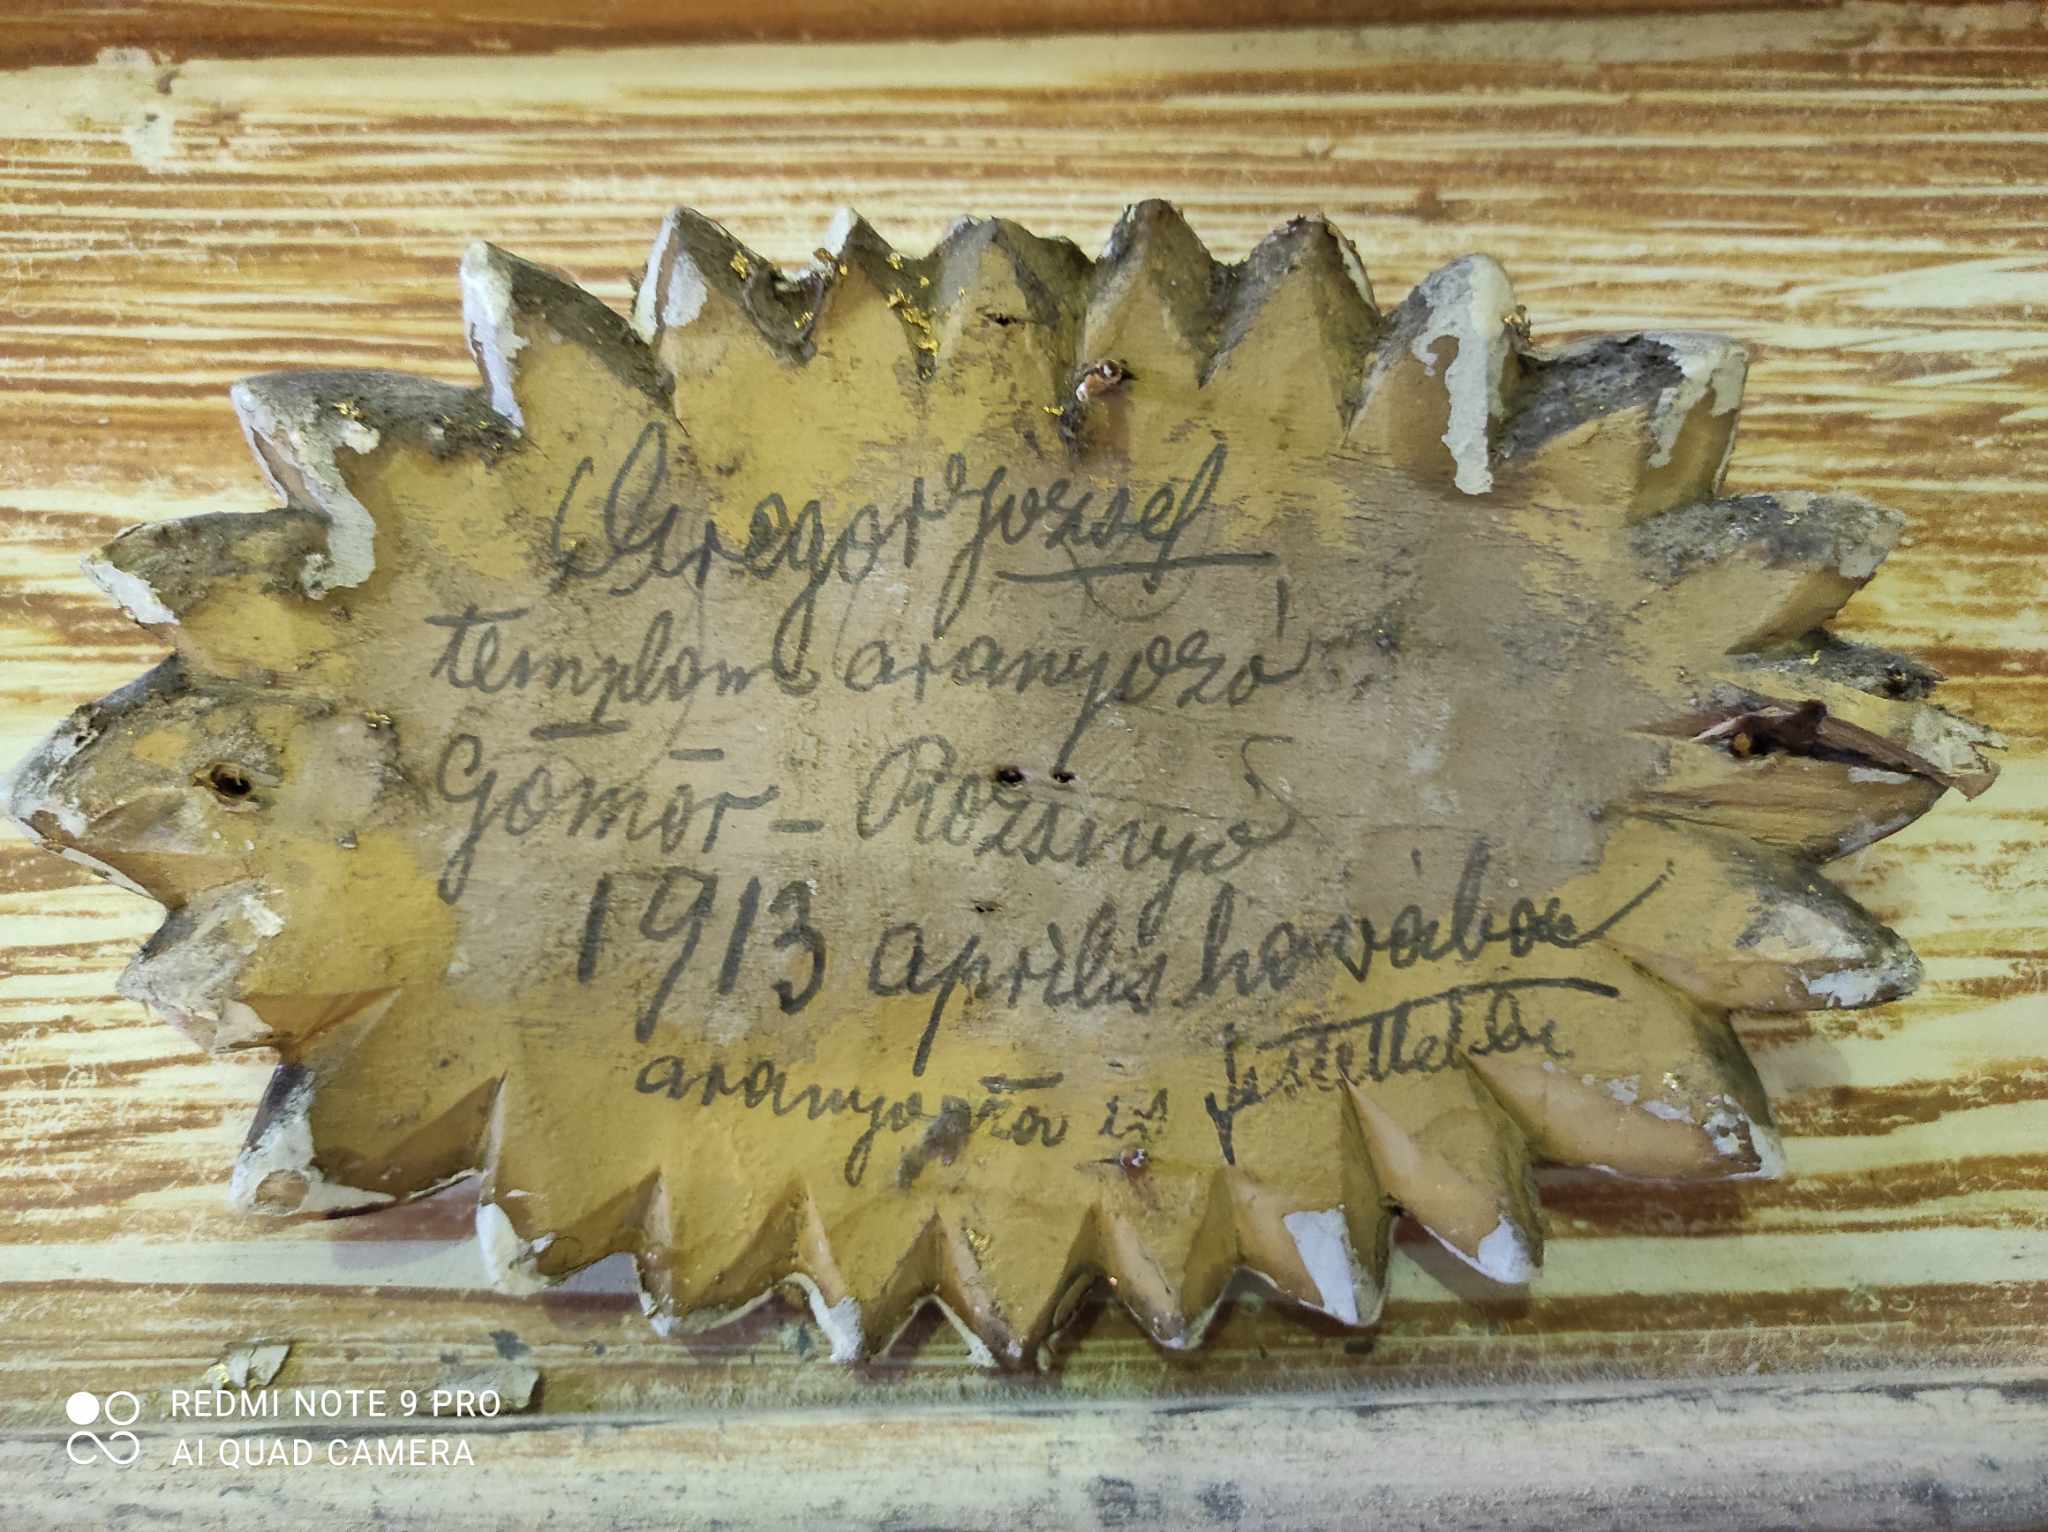 Gregor József
templom aranyozó
Gömör - Rozsnyó
1913 április havában
aranyozta is festette
REDMI NOTE 9 PRO
AI QUAD CAMERA